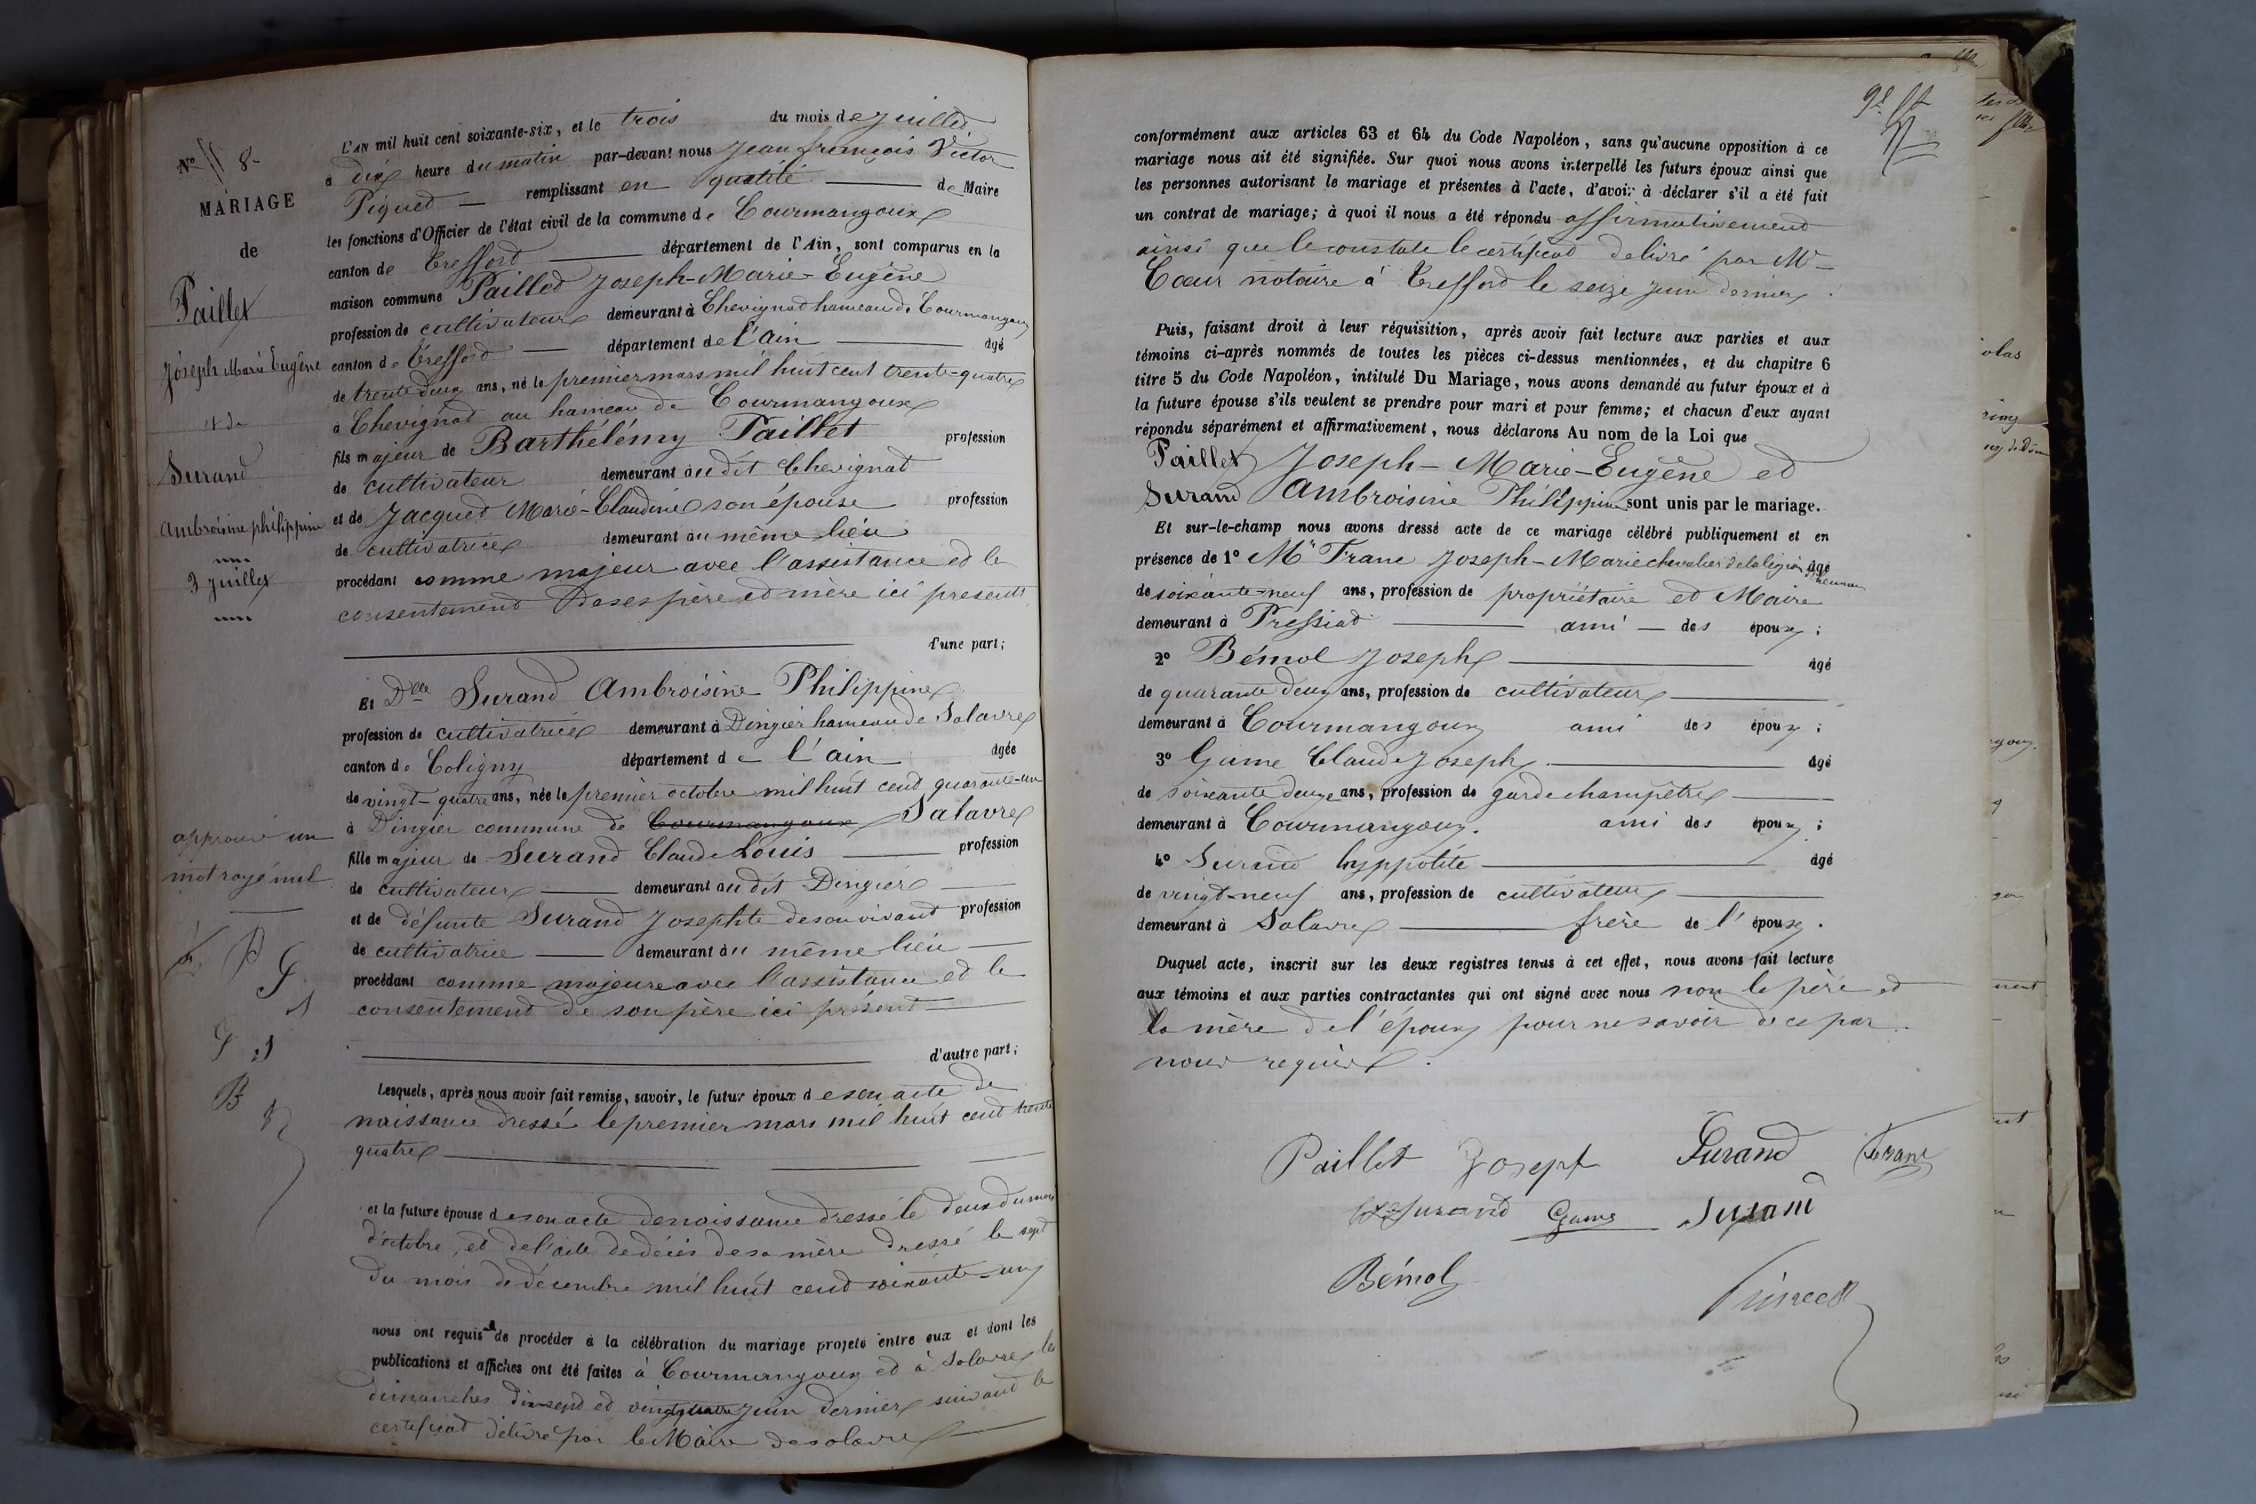 N° 8
MARIAGE
de
Paillet
Joseph Marie Eugène
et de
Surand
Ambroisine philippine
3 Juillet
approuvé un
mot rayé nul
L'AN mil huit cent soixante-six, et le trois du mois de Juillet
à dix heure du matin par-devant nous Jean françois Victor
Piquet remplissant en qualité de Maire
les fonctions d'Officier de l'état civil de la commune de Courmangoux
canton de Treffort département de l'Ain, sont comparus en la
maison commune Paillet Joseph-Marie-Eugène
profession de cultivateur demeurant à Chevignat hameau de Courmangoux
canton de Treffort département de l'ain âgé
de trente deux ans, né le premier mars mil huit cent trente-quatre
à Chevignat au hameau de Courmangoux
fils majeur de Barthélémy Paillet profession
de cultivateur demeurant au dit Chevignat
et de Jacquet Marie-Claudine son épouse profession
de cultivatrice demeurant au même lieu
procédant comme majeur avec l'assistance et le
consentement de ses père et mère ici présents
d'une part;
Et Dlle Surand Ambroisine Philippine
profession de cultivatrice demeurant à Dingier hameau de Salavre
canton de Coligny département de l'ain âgée
de vingt-quatre ans, née le premier octobre mil huit cent quarante-un
à Dingier commune de Courmangoux Salavre
fille majeur de Surand Claude Louis profession
de cultivateur demeurant au dit Dingier
et de défunte Surand Josephte de son vivant profession
de cultivatrice demeurant au même lieu
procédant comme majeure avec l'assistance et le
consentement de son père ici présent
d'autre part;
Lesquels, après nous avoir fait remise, savoir, le futur époux de son acte de
naissance dressé le premier mars mil huit cent trente
quatre
et la future épouse de son acte de naissance dressé le deux du mois
d'octobre, et de l'acte de décès de sa mère dressé le sept
du mois de décembre mil huit cent soixante-un
nous ont requis de procéder à la célébration du mariage projeté entre eux et dont les
publications et affiches ont été faites à Courmangoux et à Salavre les
dimanches dix sept et vingt quatre juin dernier suivant le
certificat délivré par le Maire de Salavre
conformément aux articles 63 et 64 du Code Napoléon, sans qu'aucune opposition à ce
mariage nous ait été signifiée. Sur quoi nous avons interpellé les futurs époux ainsi que
les personnes autorisant le mariage et présentes à l'acte, d'avoir à déclarer s'il a été fait
un contrat de mariage; à quoi il nous a été répondu affirmativement
ainsi que le constate le certificat delivré par Mr
Cœur notaire à Treffort le seize juin dernier.
Puis, faisant droit à leur réquisition, après avoir fait lecture aux parties et aux
témoins ci-après nommés de toutes les pièces ci-dessus mentionnées, et du chapitre 6
titre 5 du Code Napoléon, intitulé Du Mariage, nous avons demandé au futur époux et à
la future épouse s'ils veulent se prendre pour mari et pour femme; et chacun d'eux ayant
répondu séparément et affirmativement, nous déclarons Au nom de la Loi que
Paillet Joseph-Marie-Eugène et
Surand Ambroisine Philippine sont unis par le mariage.
Et sur-le-champ nous avons dressé acte de ce mariage célébré publiquement et en
présence de 1° Mr Franc Joseph-Marie chevalier de la légion d'honneur âgé
de soixante-neuf ans, profession de propriétaire et Maire
demeurant à Pressiat ami des époux;
2° Bémol Joseph âgé
de quarante deux ans, profession de cultivateur
demeurant à Courmangoux ami des époux;
3° Game Claude Joseph âgé
de soixante deuze ans, profession de garde champêtre
demeurant à Courmangoux. ami des époux;
4° Surand hyppolite âgé
de vingt-neuf ans, profession de cultivateur
demeurant à Salavre frère de l'époux.
Duquel acte, inscrit sur les deux registres tenus à cet effet, nous avons fait lecture
aux témoins et aux parties contractantes qui ont signé avec nous non le père et
la mère de l'époux pour ne savoir de ce par
nous requis.
Paillet Joseph Surand Franc
Surand Game Surand
Bémol
Piquet